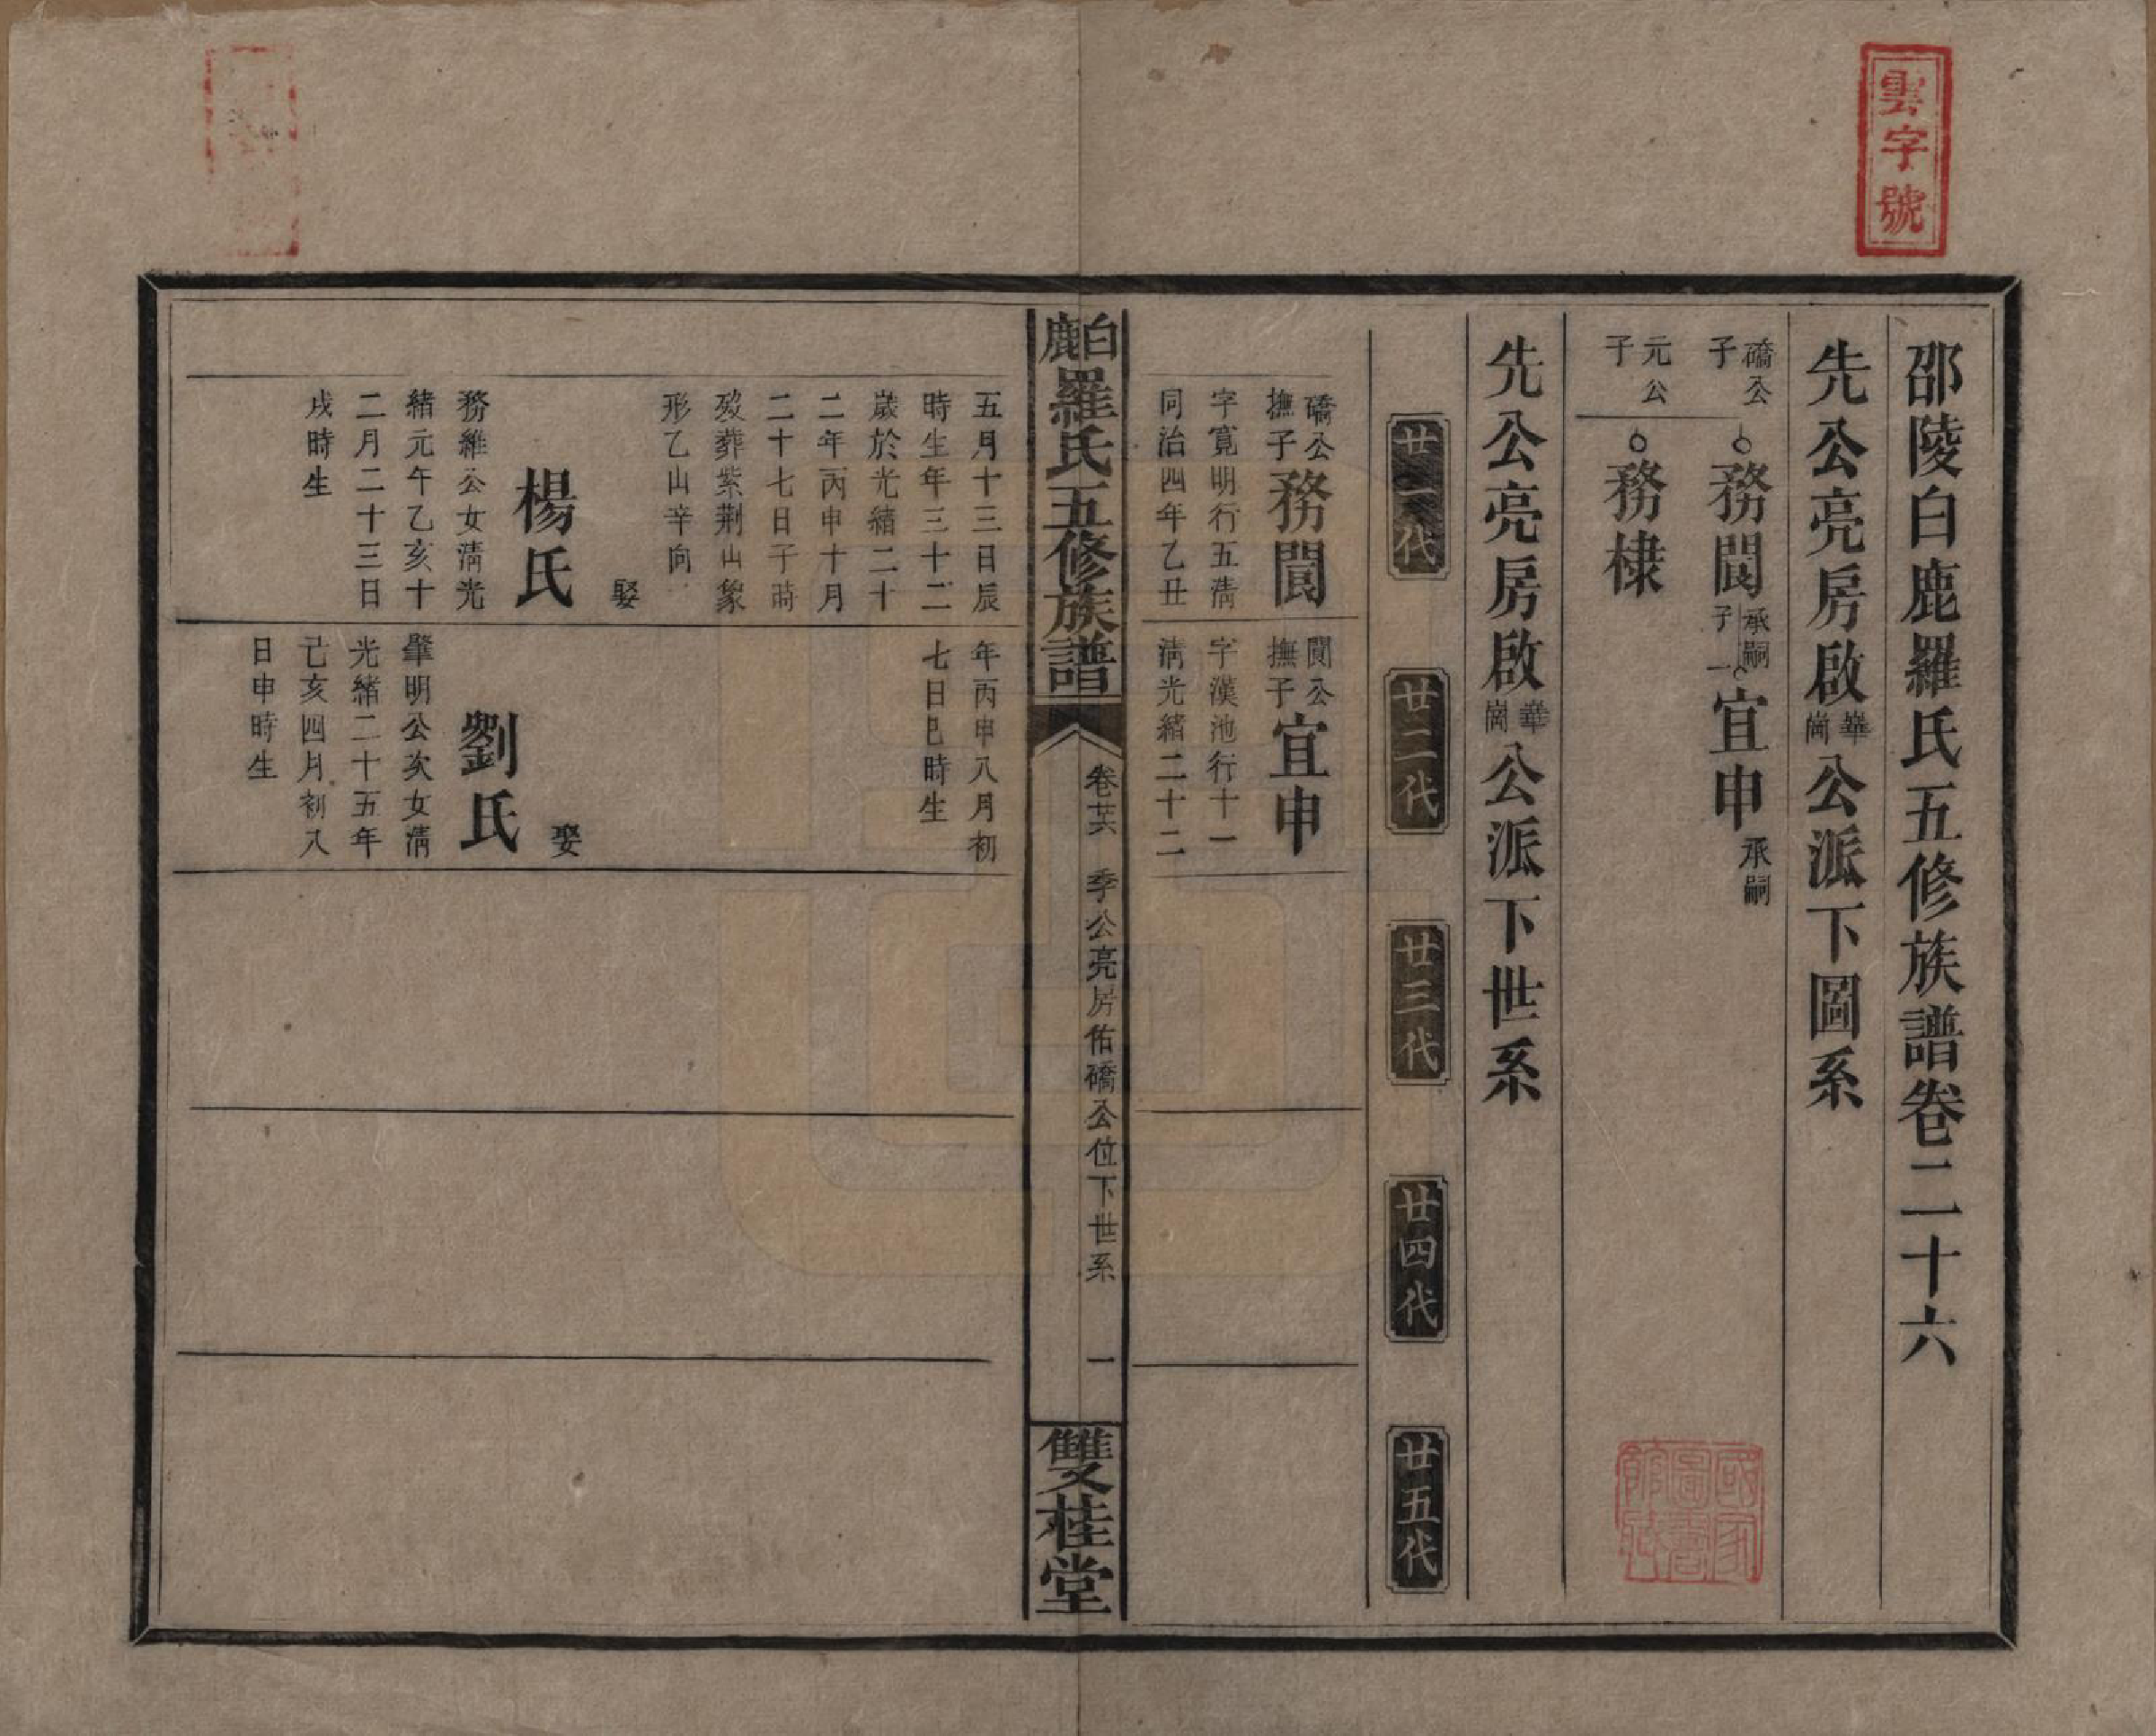 雲字號
邵陵白鹿羅氏五修族譜卷二十六
先公亮房啟華崗公派下圖系
礄公子 務閬 承嗣子一 宜申 承嗣
元公子 務棣
先公亮房啟華崗公派下世系
廿一代 廿二代 廿三代 廿四代 廿五代
礄公撫子 務閬
字寬明行五清
同治四年乙丑
五月十三日辰
時生年三十二
歲於光緒二十
二年丙申十月
二十七日子時
歿葬紫荆山象
形乙山辛向
娶
楊氏
務維公女清光
緒元年乙亥十
二月二十三日
戌時生
閬公撫子 宜申
字漢池行十一
清光緒二十二
年丙申八月初
七日巳時生
娶
劉氏
肇明公次女清
光緒二十五年
己亥四月初八
日申時生
白鹿羅氏五修族譜
卷廿六 季公亮房佑礄公位下世系 一
雙桂堂
國家圖書館藏